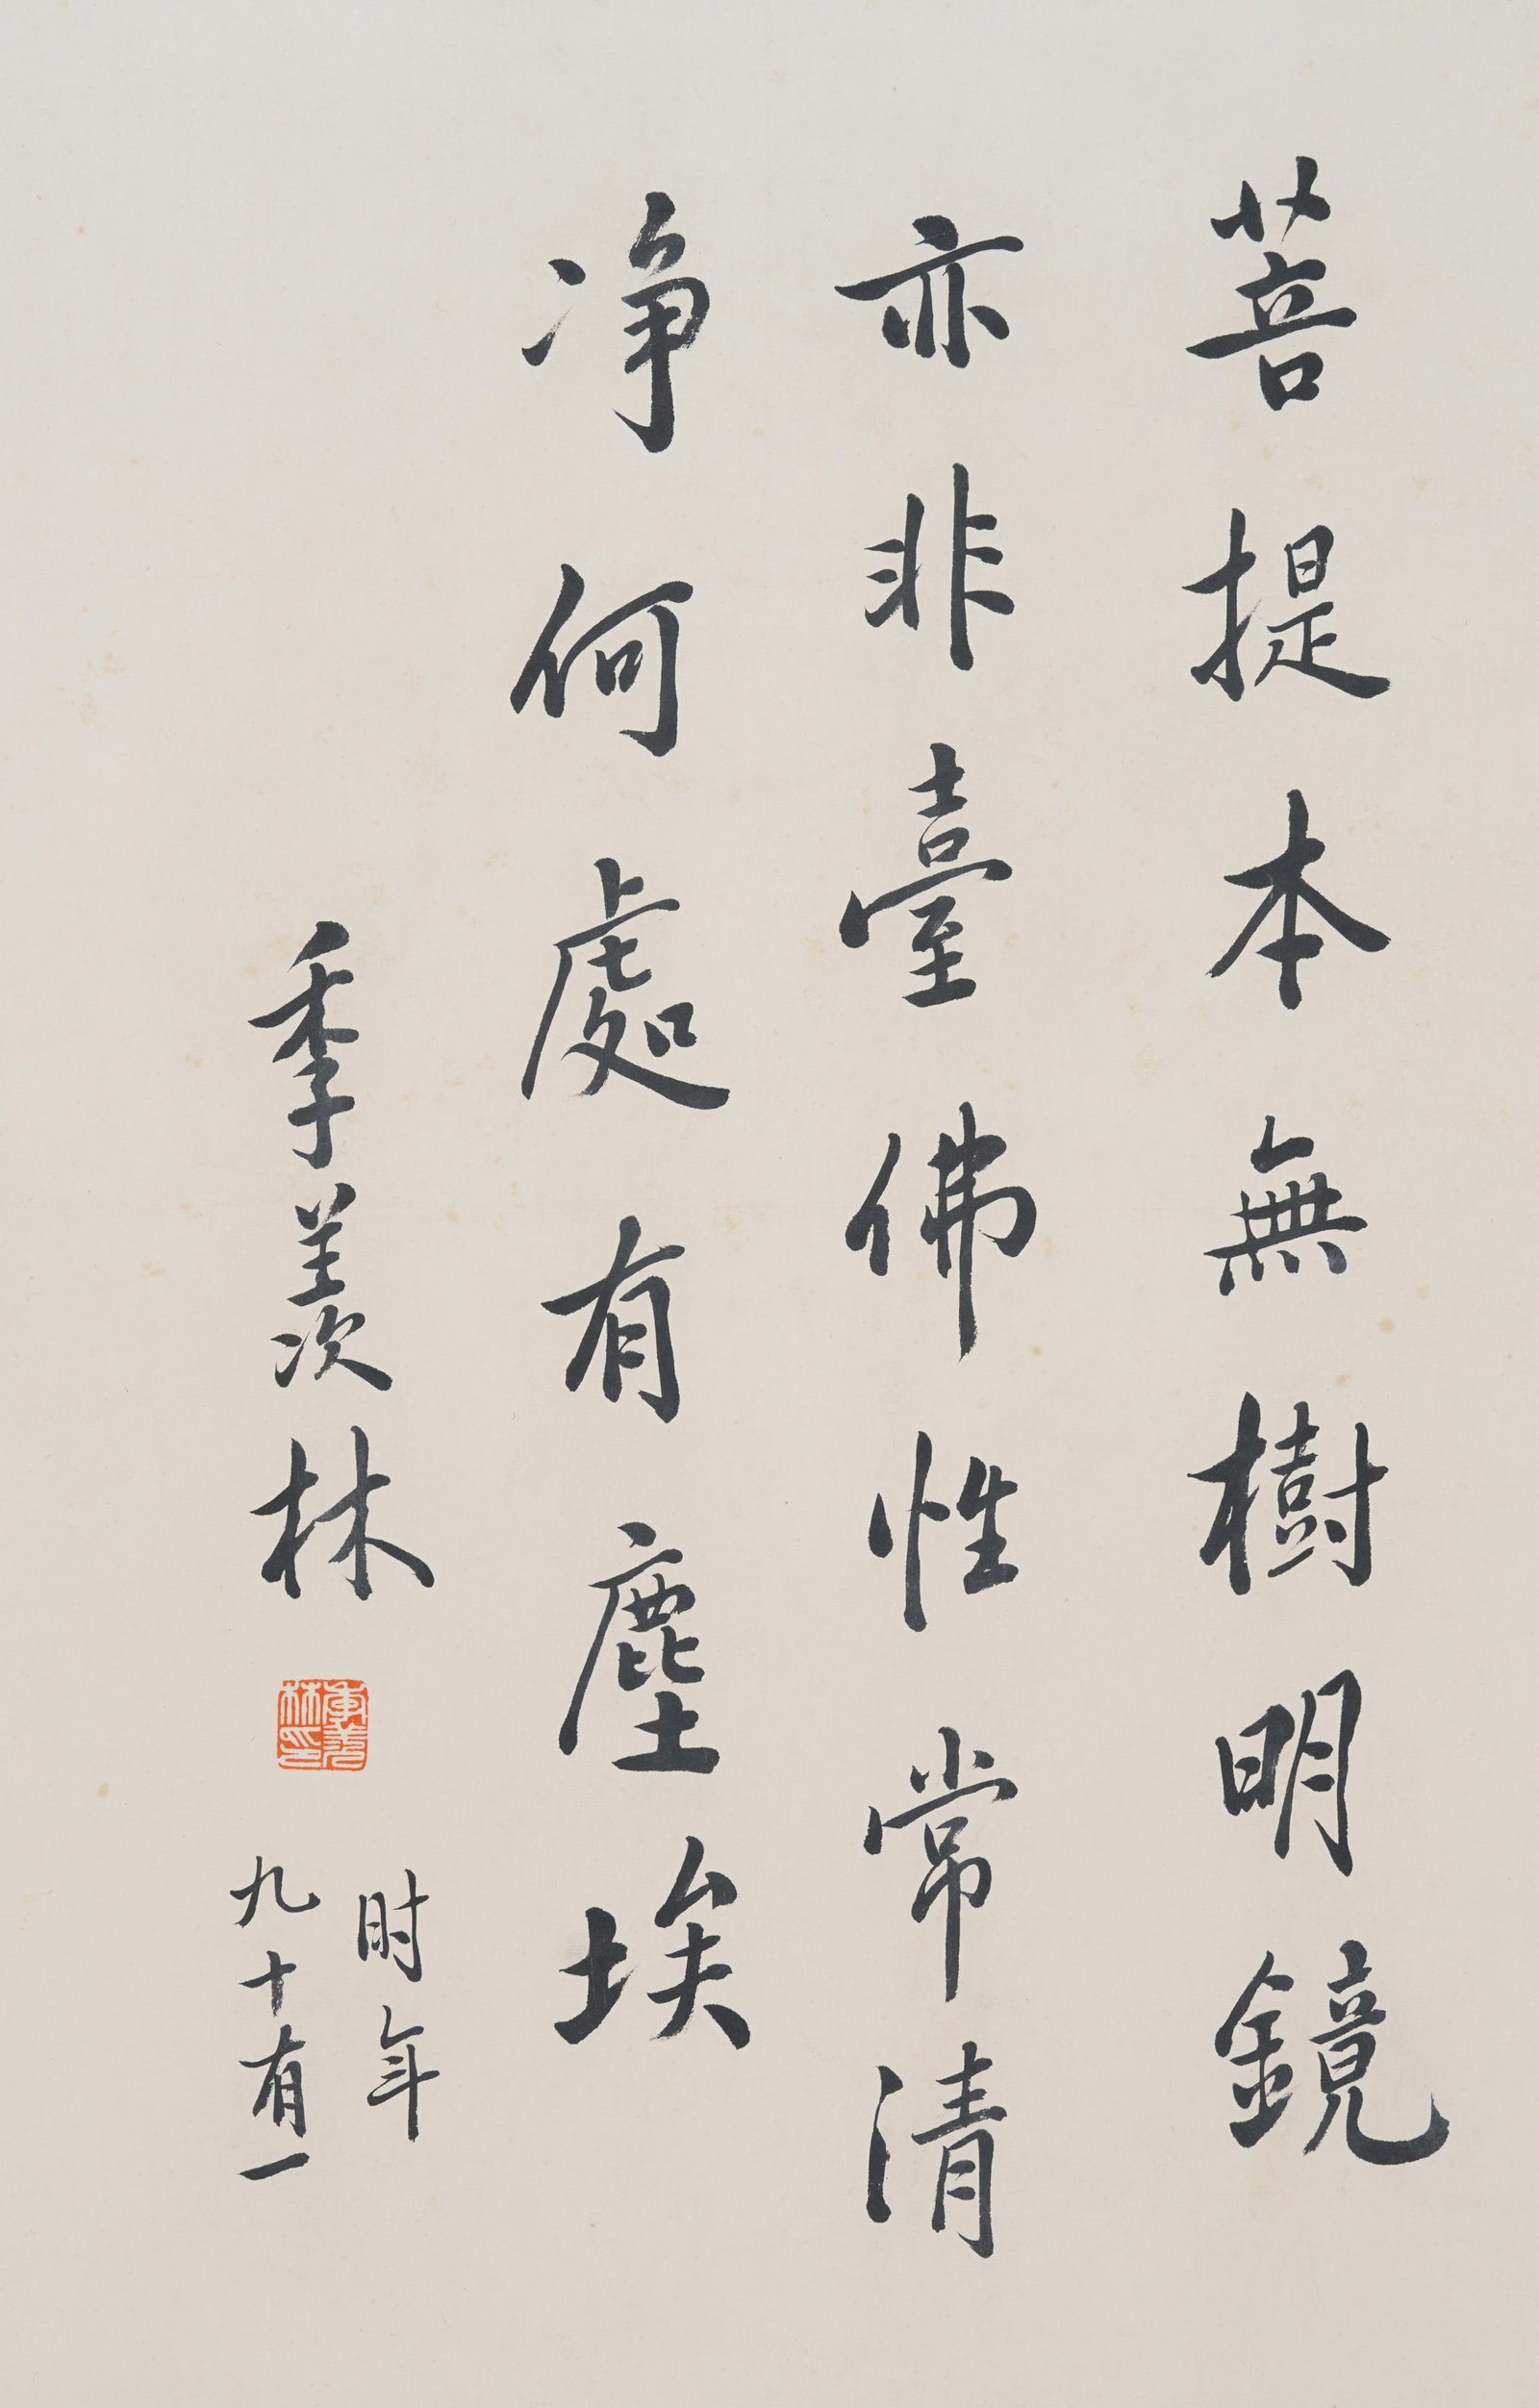 菩提本無樹明鏡
亦非臺佛性常清
净何處有塵埃
季羡林
季羡林印
时年
九十有一